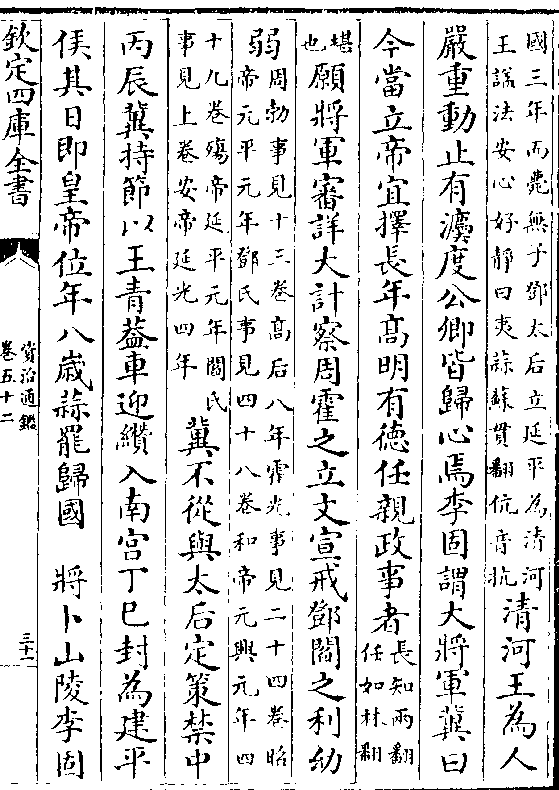 國三年而薨無子鄧太后立延平為清河
王謚法安心好靜曰夷蒜蘇貫翻伉音抗
清河王為人
嚴重動止有灋度公卿皆歸心焉李固謂大將軍冀曰
今當立帝宜擇長年高明有德任親政事者
長知兩翻
任如林翻
堪
也
願將軍審詳大計察周霍之立文宣戒鄧閻之利幼
弱
周勃事見十三卷高后八年霍光事見二十四卷昭
帝元平元年鄧氏事見四十八卷和帝元興元年四
十九卷殤帝延平元年閻氏
事見上卷安帝延光四年
冀不從與太后定策禁中
丙辰冀持節以王青蓋車迎纘入南宫丁巳封為建平
侯其日即皇帝位年八歲蒜罷歸國 將卜山陵李固
欽定四庫全書
資治通鑑
卷五十二
三十一